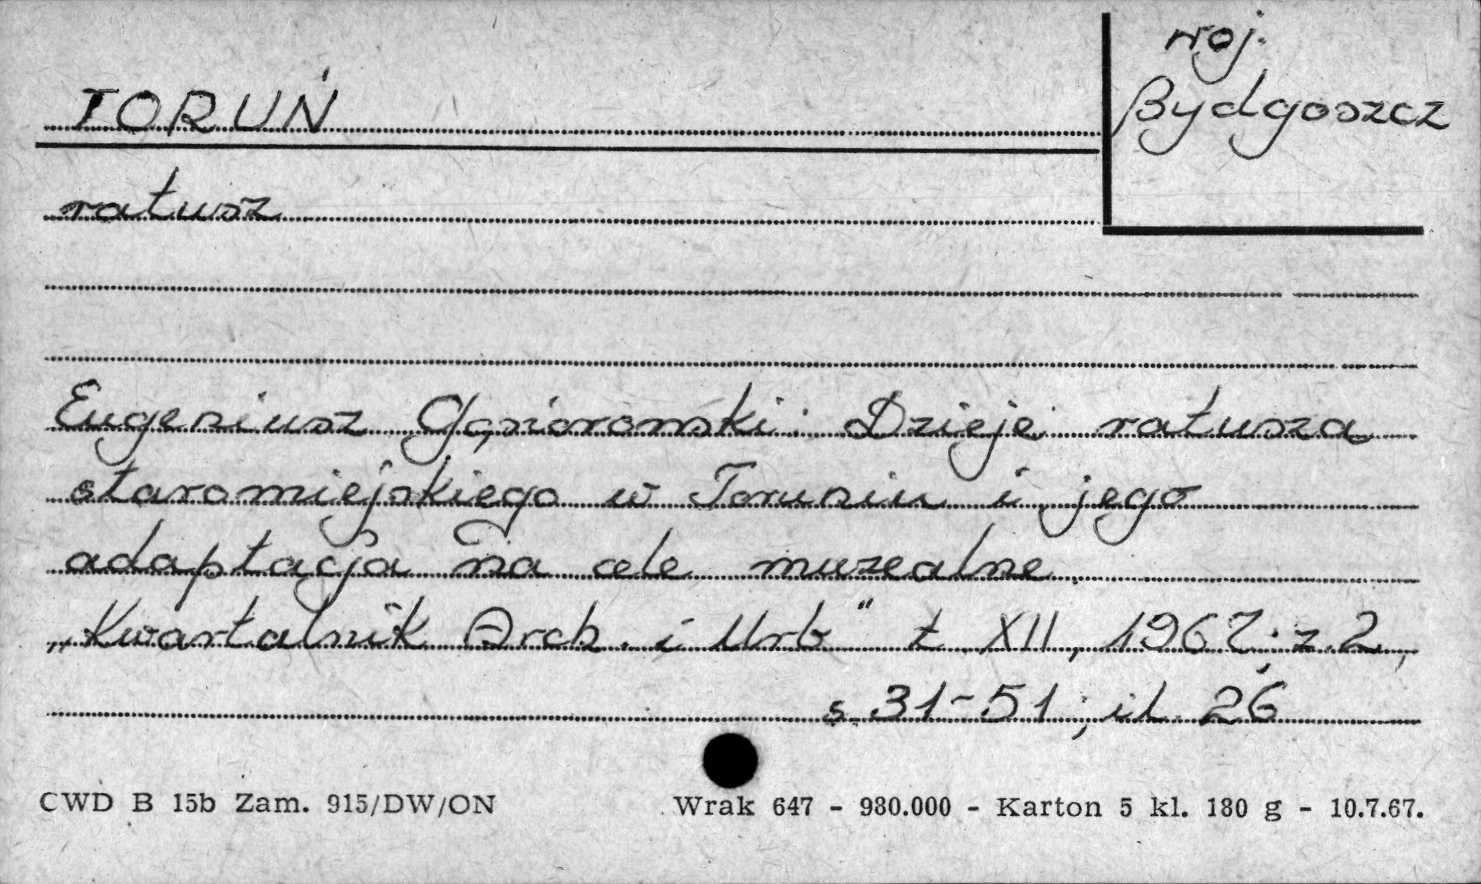 woj.
Bydgoszcz
TORUŃ
ratusz
Eugeniusz Gąsiorowski: Dzieje ratusza
staromiejskiego w Toruniu i jego
adaptacja na cele muzealne
„Kwartalnik Arch. i Urb" t. XII, 1967; z. 2,
s. 31-51; il. 26
CWD B 15b Zam. 915/DW/ON
Wrak 647 - 980.000 - Karton 5 kl. 180 g - 10.7.67.